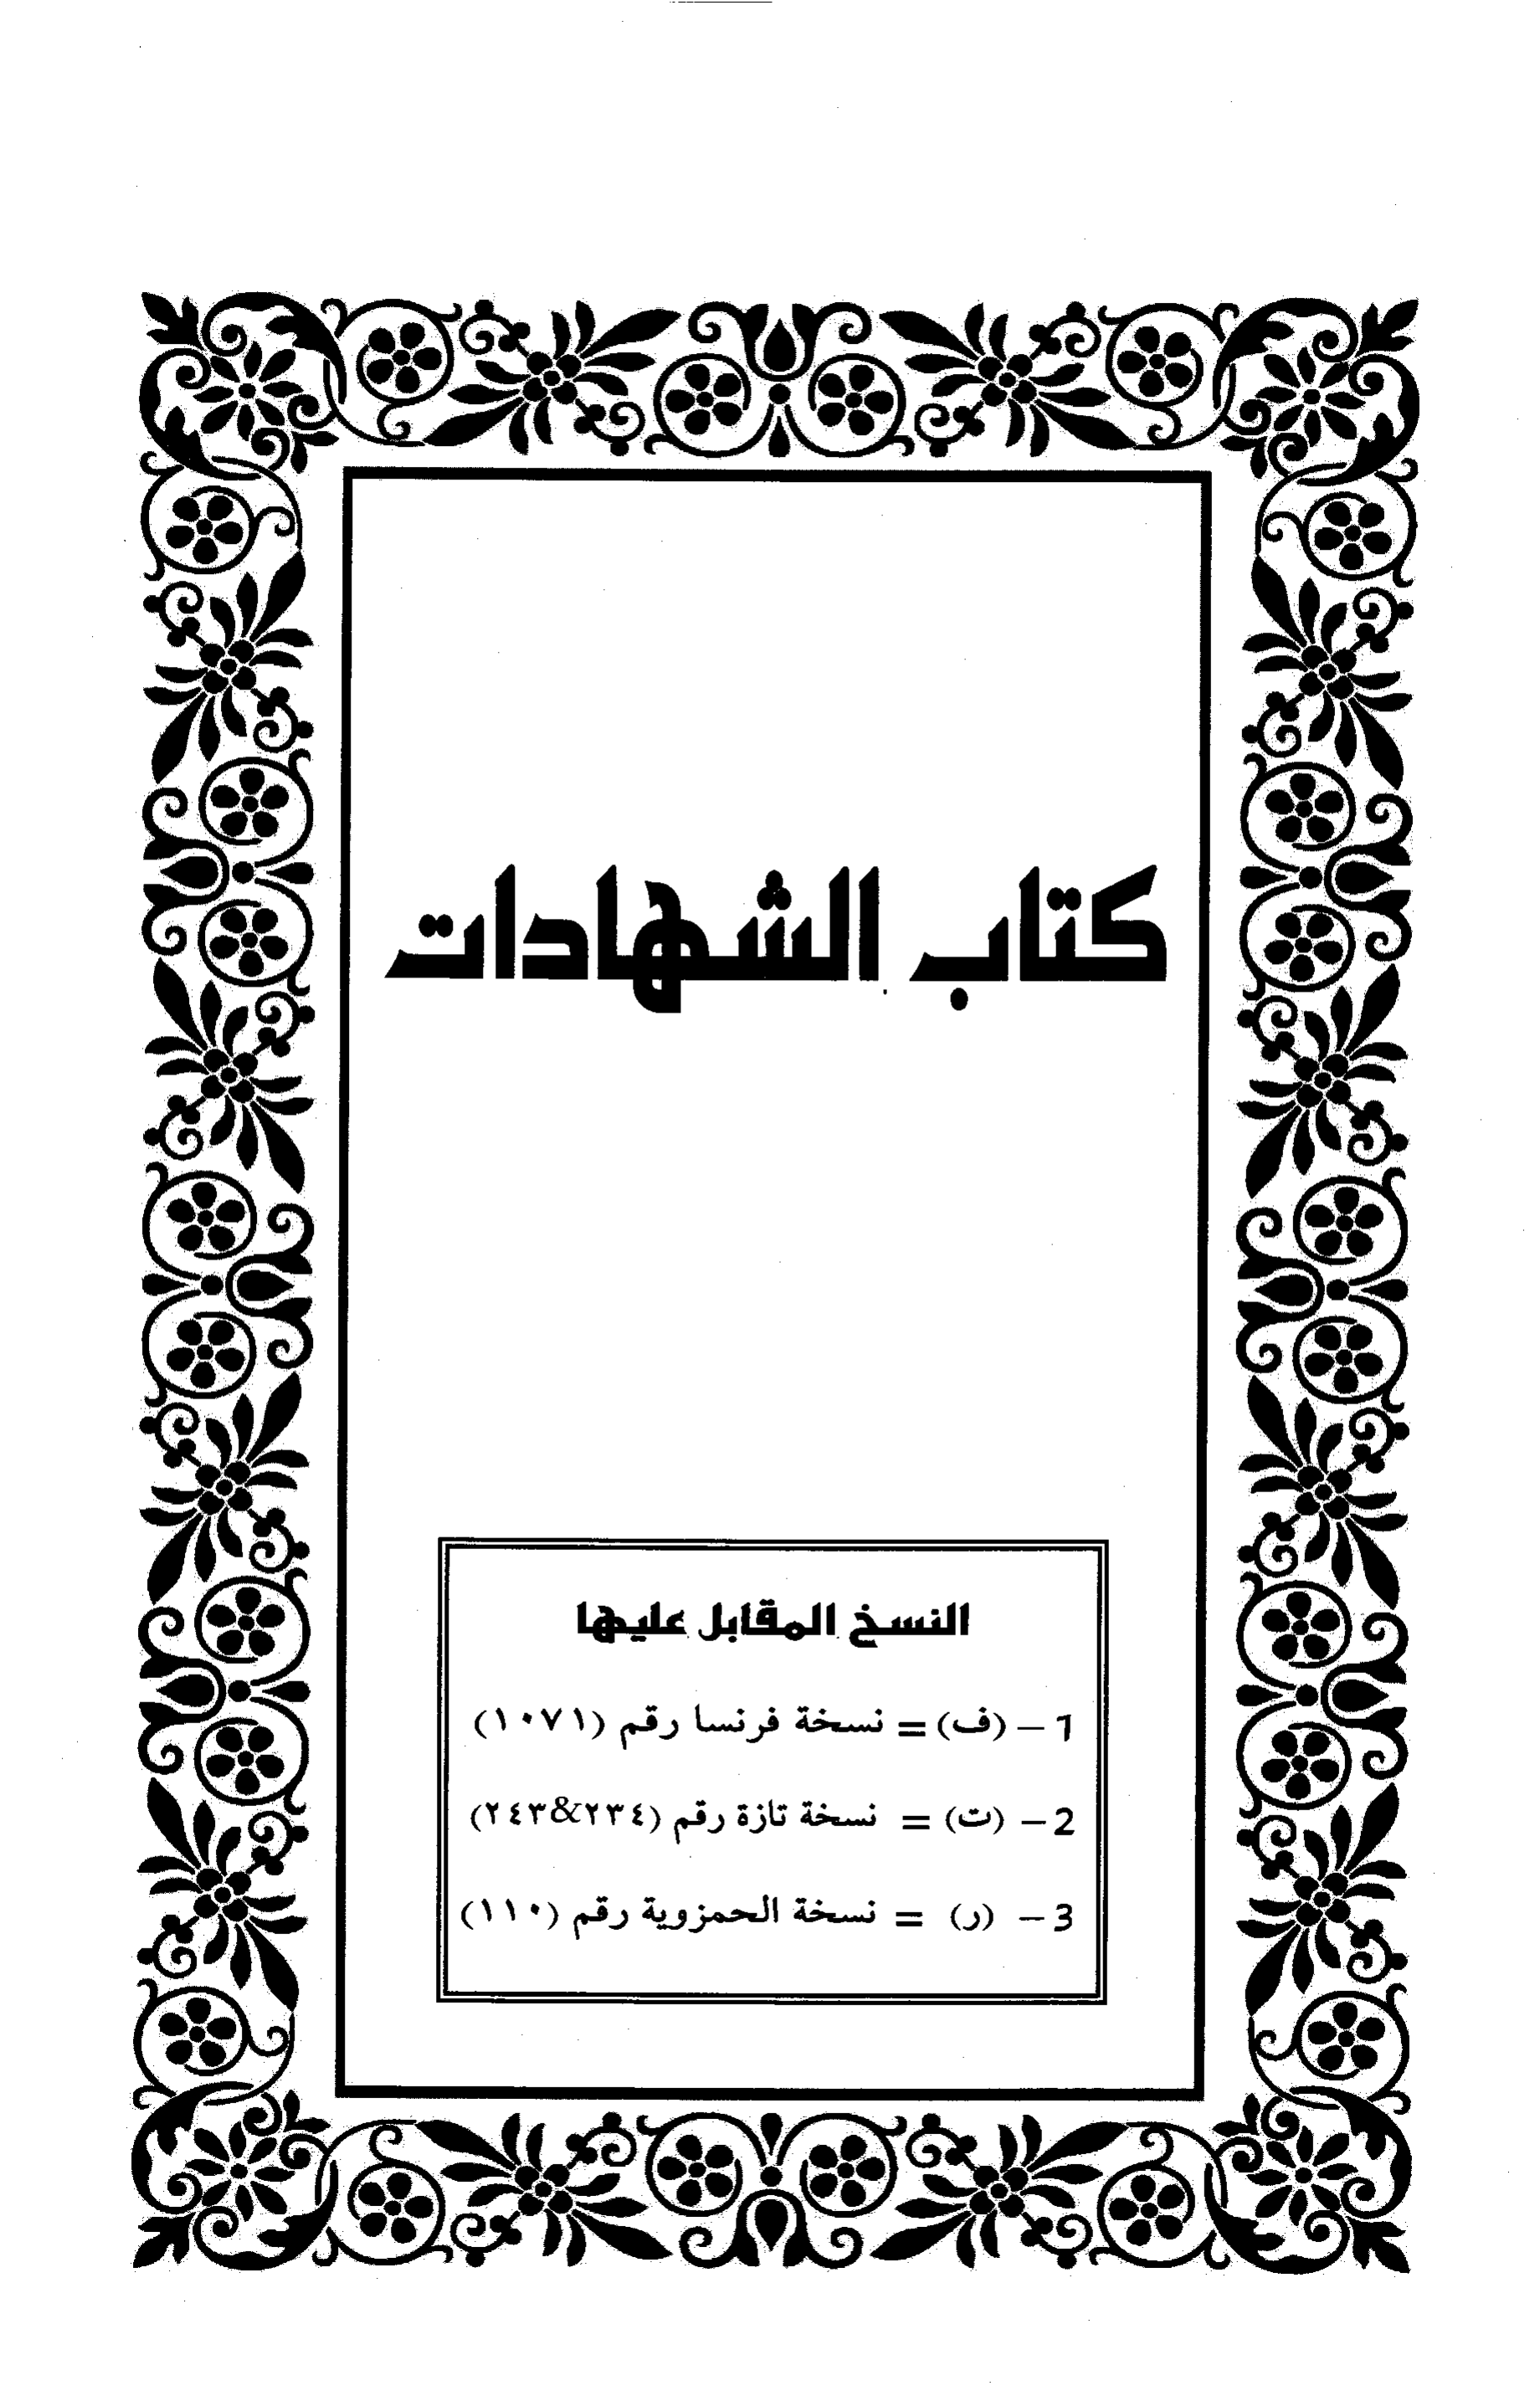 كتاب الشهادات
النسخ المقابل عليها
1 - (ف) = نسخة فرنسا رقم (١٠٧١)
2 - (ت) = نسخة تازة رقم (٢٣٤&٢٤٣)
3 - (ر) = نسخة الحمزوية رقم (١١٠)